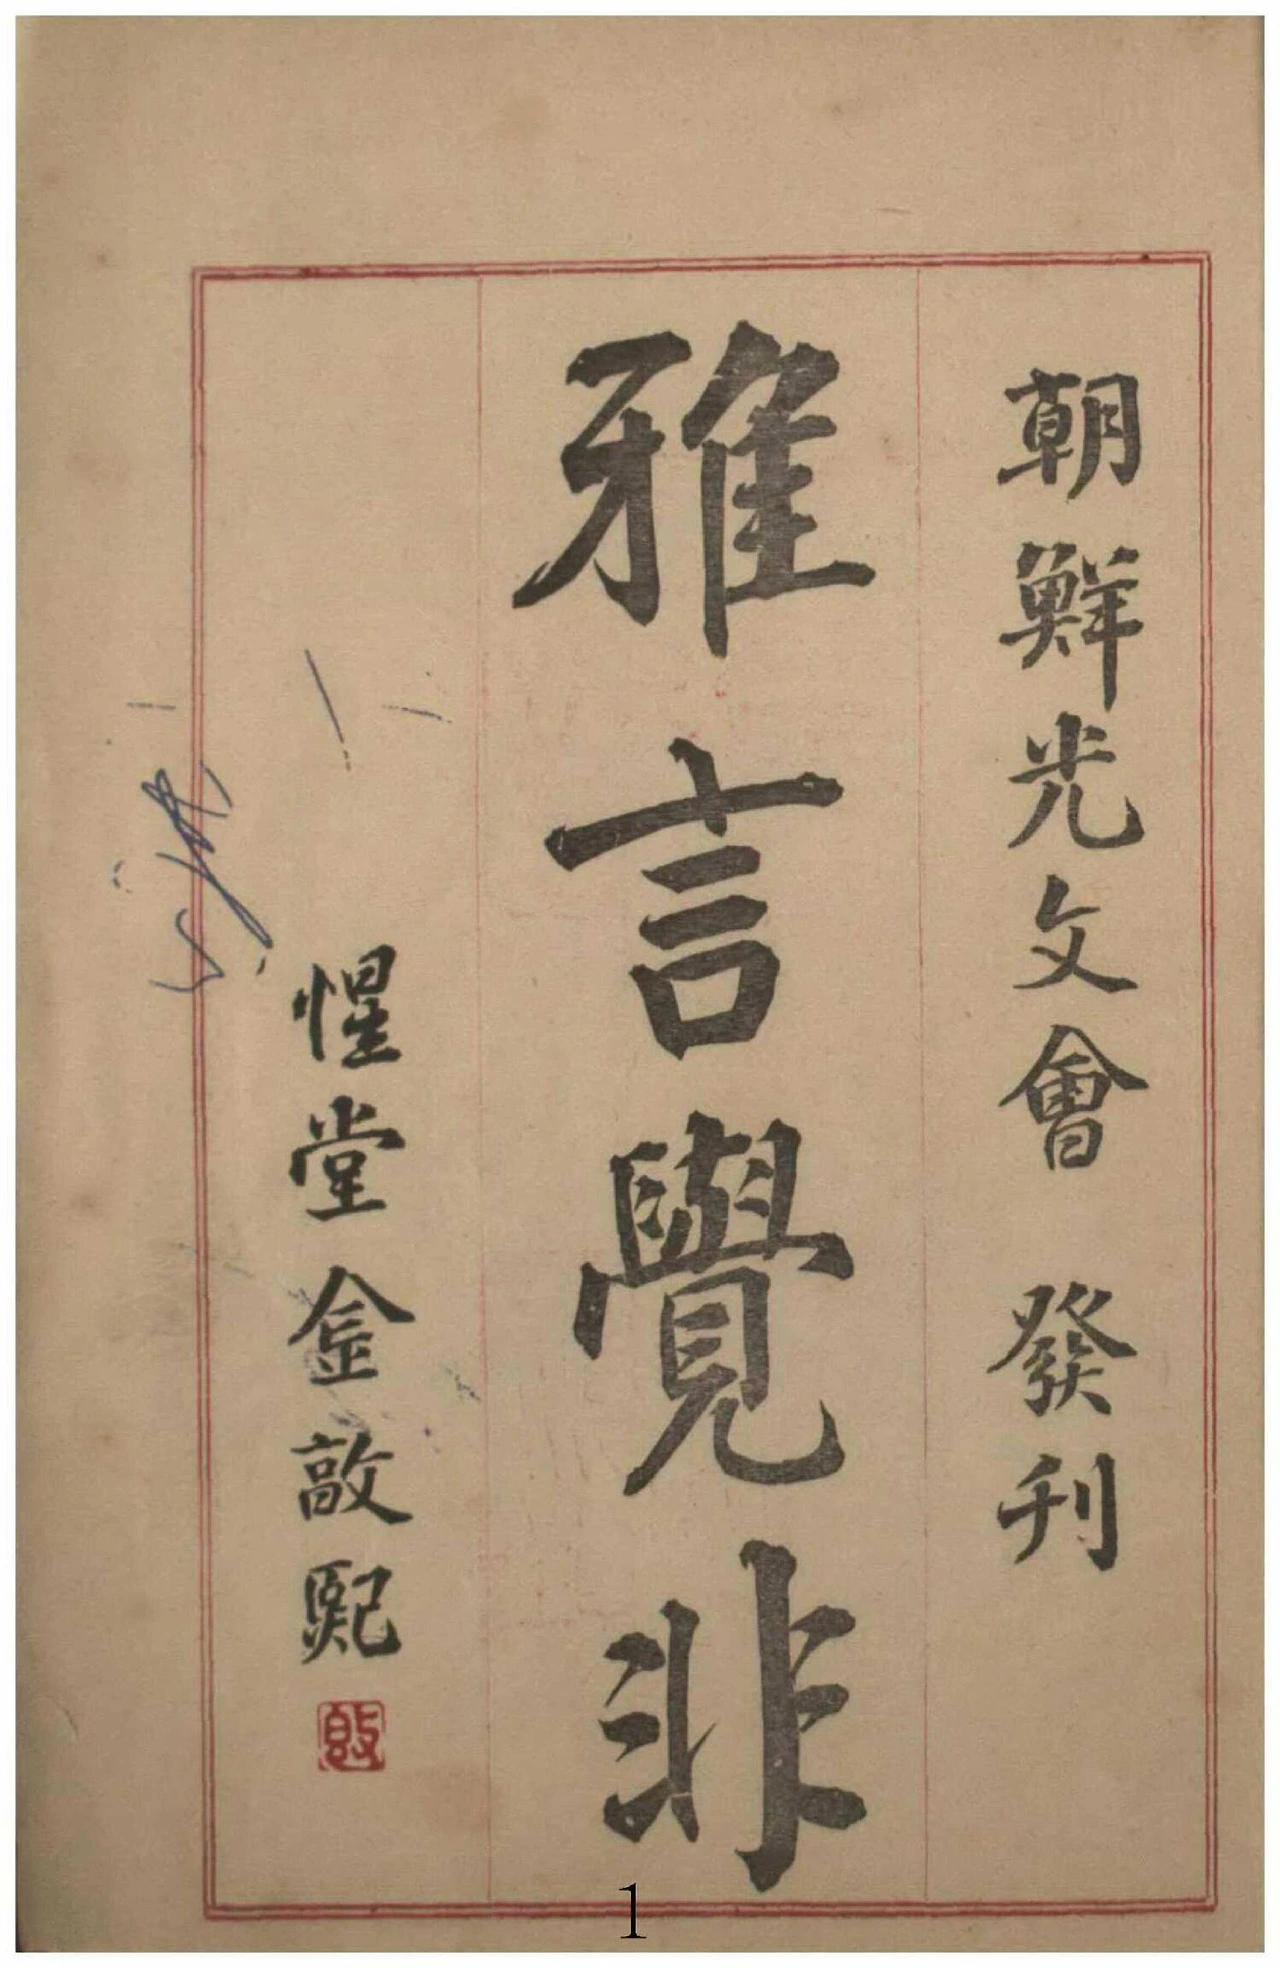 朝鮮光文會 發刊
雅言覺非
惺堂金敦熙
1